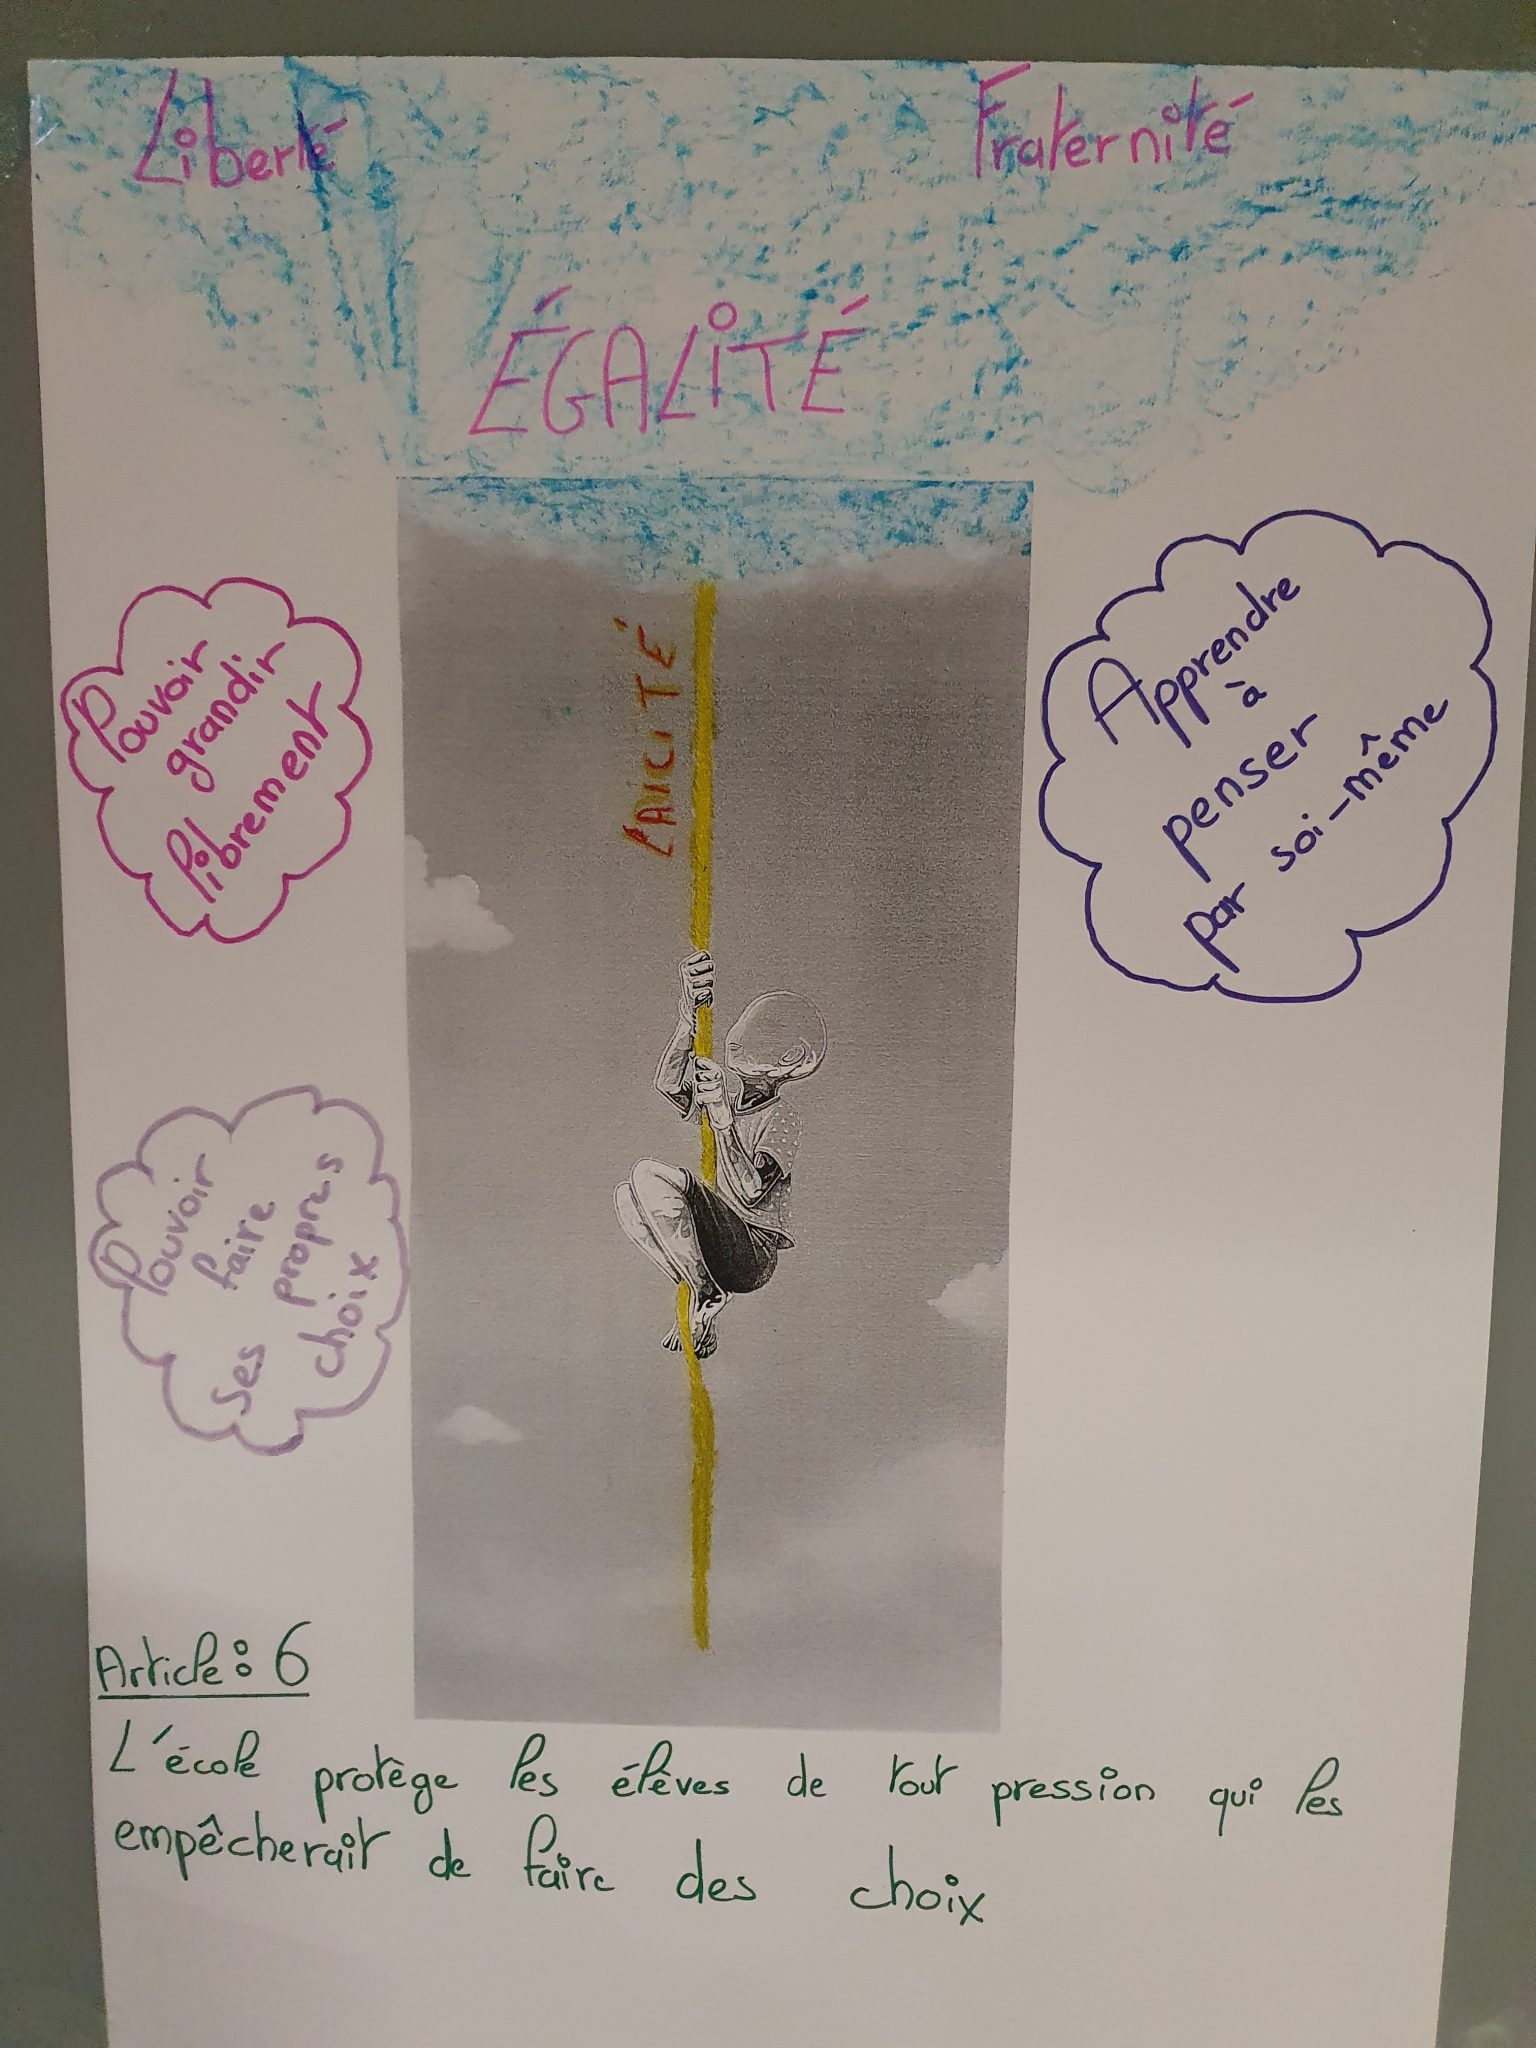 Liberté
Fraternité
ÉGALITÉ
LAICITÉ
Pouvoir
grandir
librement
Apprendre
à
penser
par soi-même
Pouvoir
faire
ses propres
choix
Article: 6
L'école protège les élèves de tout pression qui les
empêcherait de faire des choix